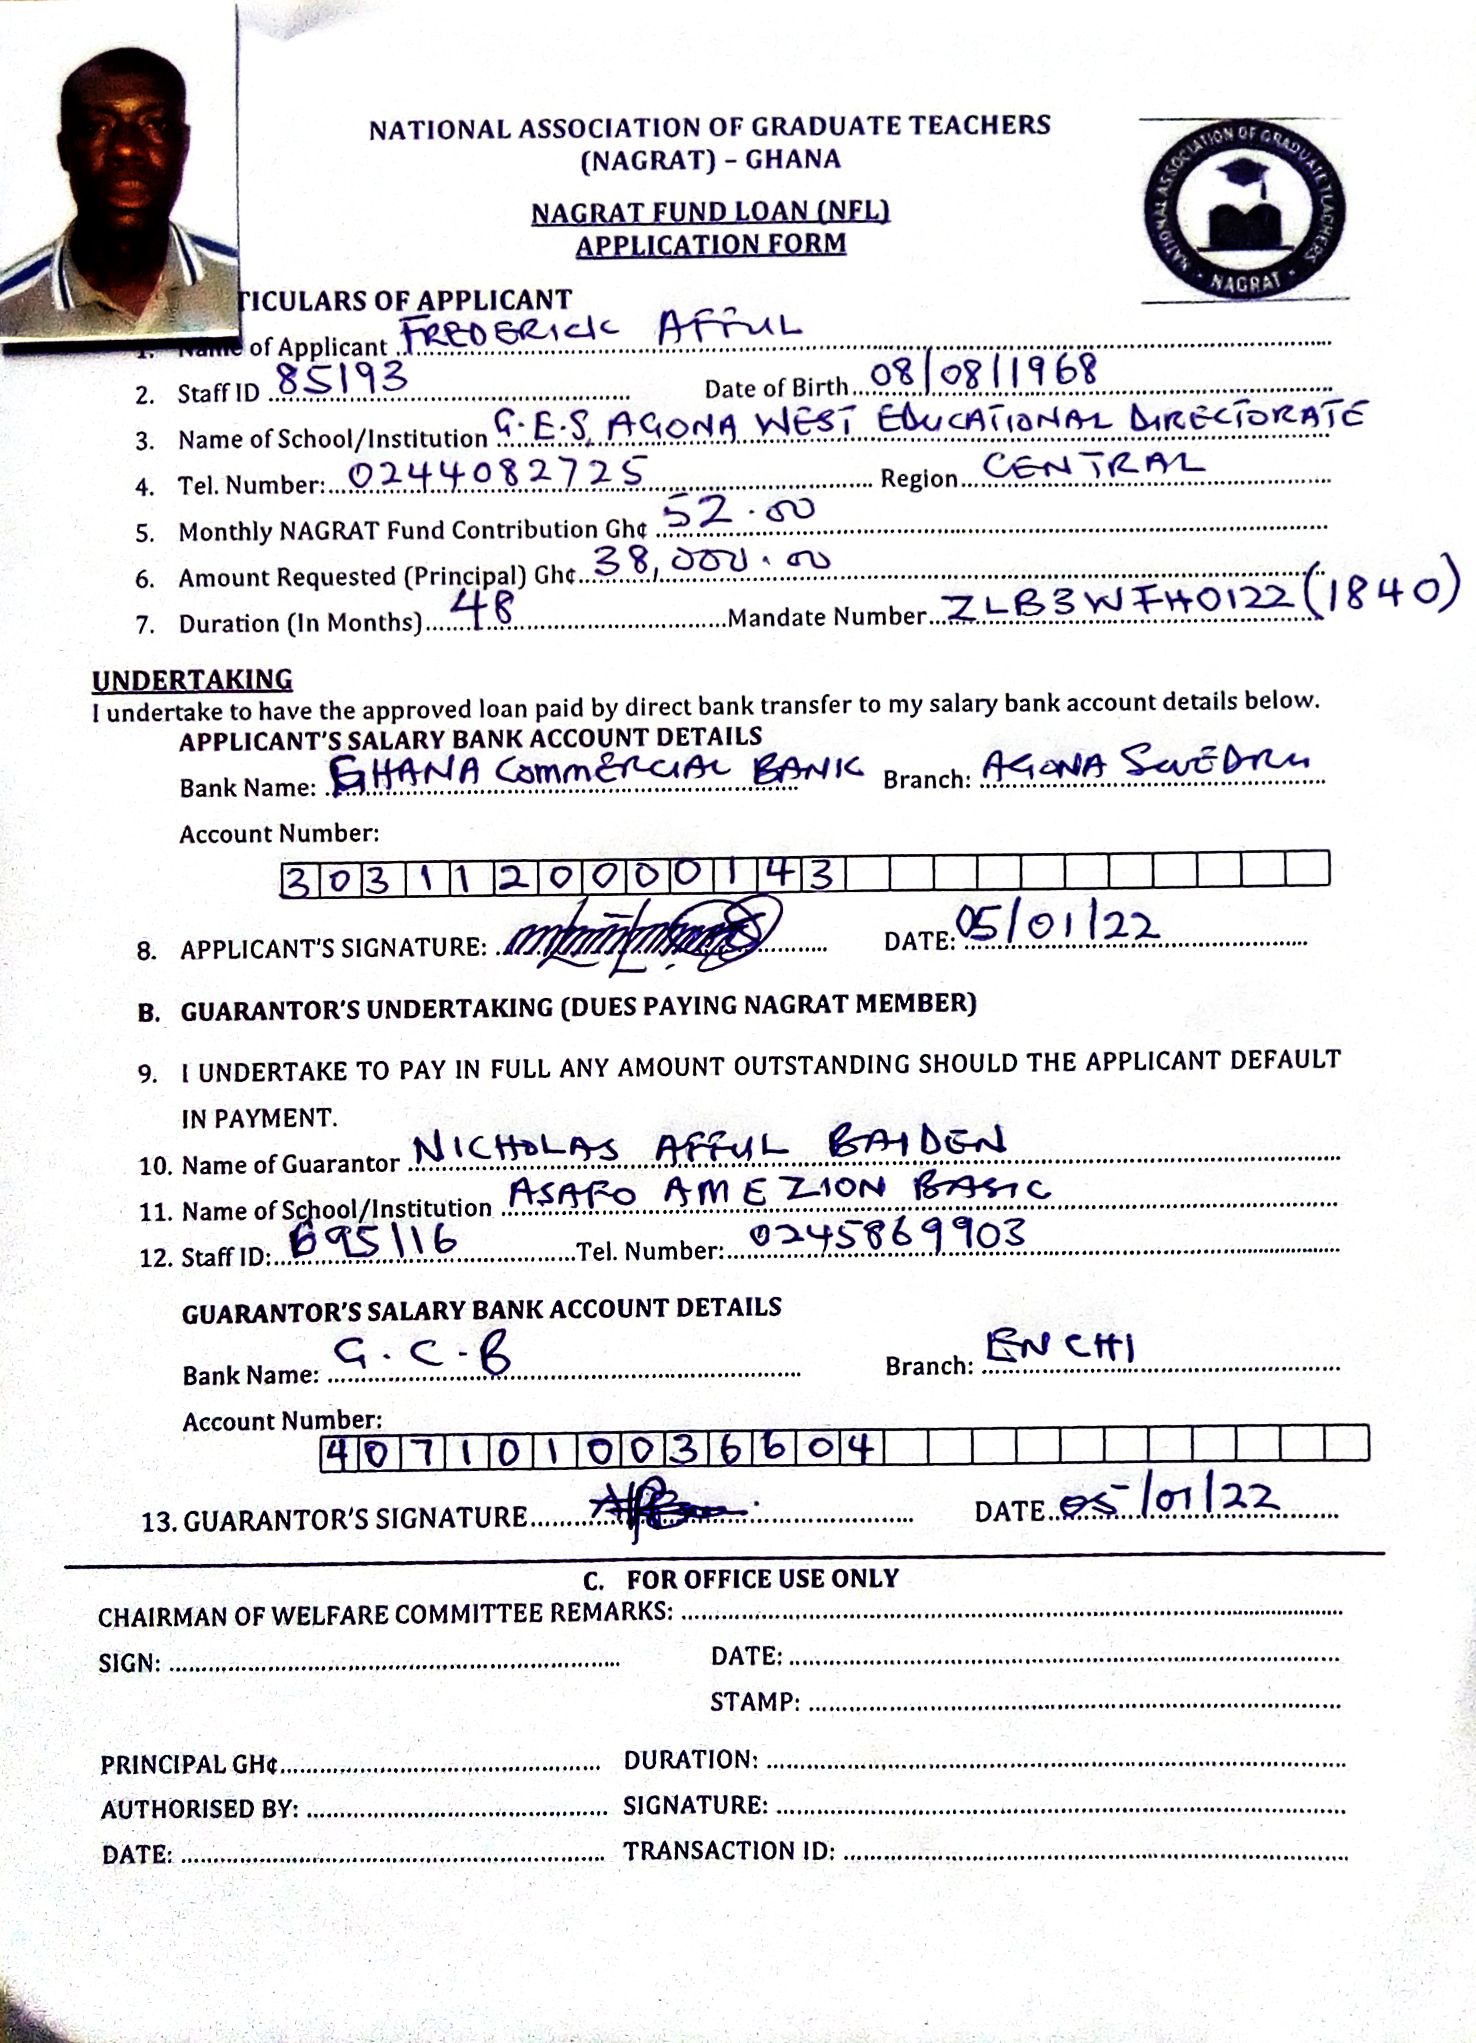 NATIONAL ASSOCIATION OF GRADUATE TEACHERS
(NAGRAT) – GHANA
NATIONAL ASSOCIATION OF GRADUATE TEACHERS
NAGRAT
NAGRAT FUND LOAN (NFL)
APPLICATION FORM
TICULARS OF APPLICANT
1. Name of Applicant FREDERICK AFFUL
2. Staff ID 85193 Date of Birth 08/08/1968
3. Name of School/Institution G.E.S, AGONA WEST EDUCATIONAL DIRECTORATE
4. Tel. Number: 0244082725 Region CENTRAL
5. Monthly NAGRAT Fund Contribution Gh¢ 52.00
6. Amount Requested (Principal) Gh¢ 38,000.00
7. Duration (In Months) 48 Mandate Number ZLB3WFH0122 (1840)
UNDERTAKING
I undertake to have the approved loan paid by direct bank transfer to my salary bank account details below.
APPLICANT'S SALARY BANK ACCOUNT DETAILS
Bank Name: GHANA COMMERCIAL BANK Branch: AGONA SWEDRU
Account Number:
3031120000143
8. APPLICANT'S SIGNATURE: DATE: 05/01/22
B. GUARANTOR'S UNDERTAKING (DUES PAYING NAGRAT MEMBER)
9. I UNDERTAKE TO PAY IN FULL ANY AMOUNT OUTSTANDING SHOULD THE APPLICANT DEFAULT
IN PAYMENT.
10. Name of Guarantor NICHOLAS AFFUL BAIDEN
11. Name of School/Institution ASAFO AME ZION BASIC
12. Staff ID: 695116 Tel. Number: 0245869903
GUARANTOR'S SALARY BANK ACCOUNT DETAILS
Bank Name: G.C.B Branch: ENCHI
Account Number:
4071010036604
13. GUARANTOR'S SIGNATURE DATE 05/01/22
C. FOR OFFICE USE ONLY
CHAIRMAN OF WELFARE COMMITTEE REMARKS:
SIGN: DATE:
STAMP:
PRINCIPAL GH¢ DURATION:
AUTHORISED BY: SIGNATURE:
DATE: TRANSACTION ID: